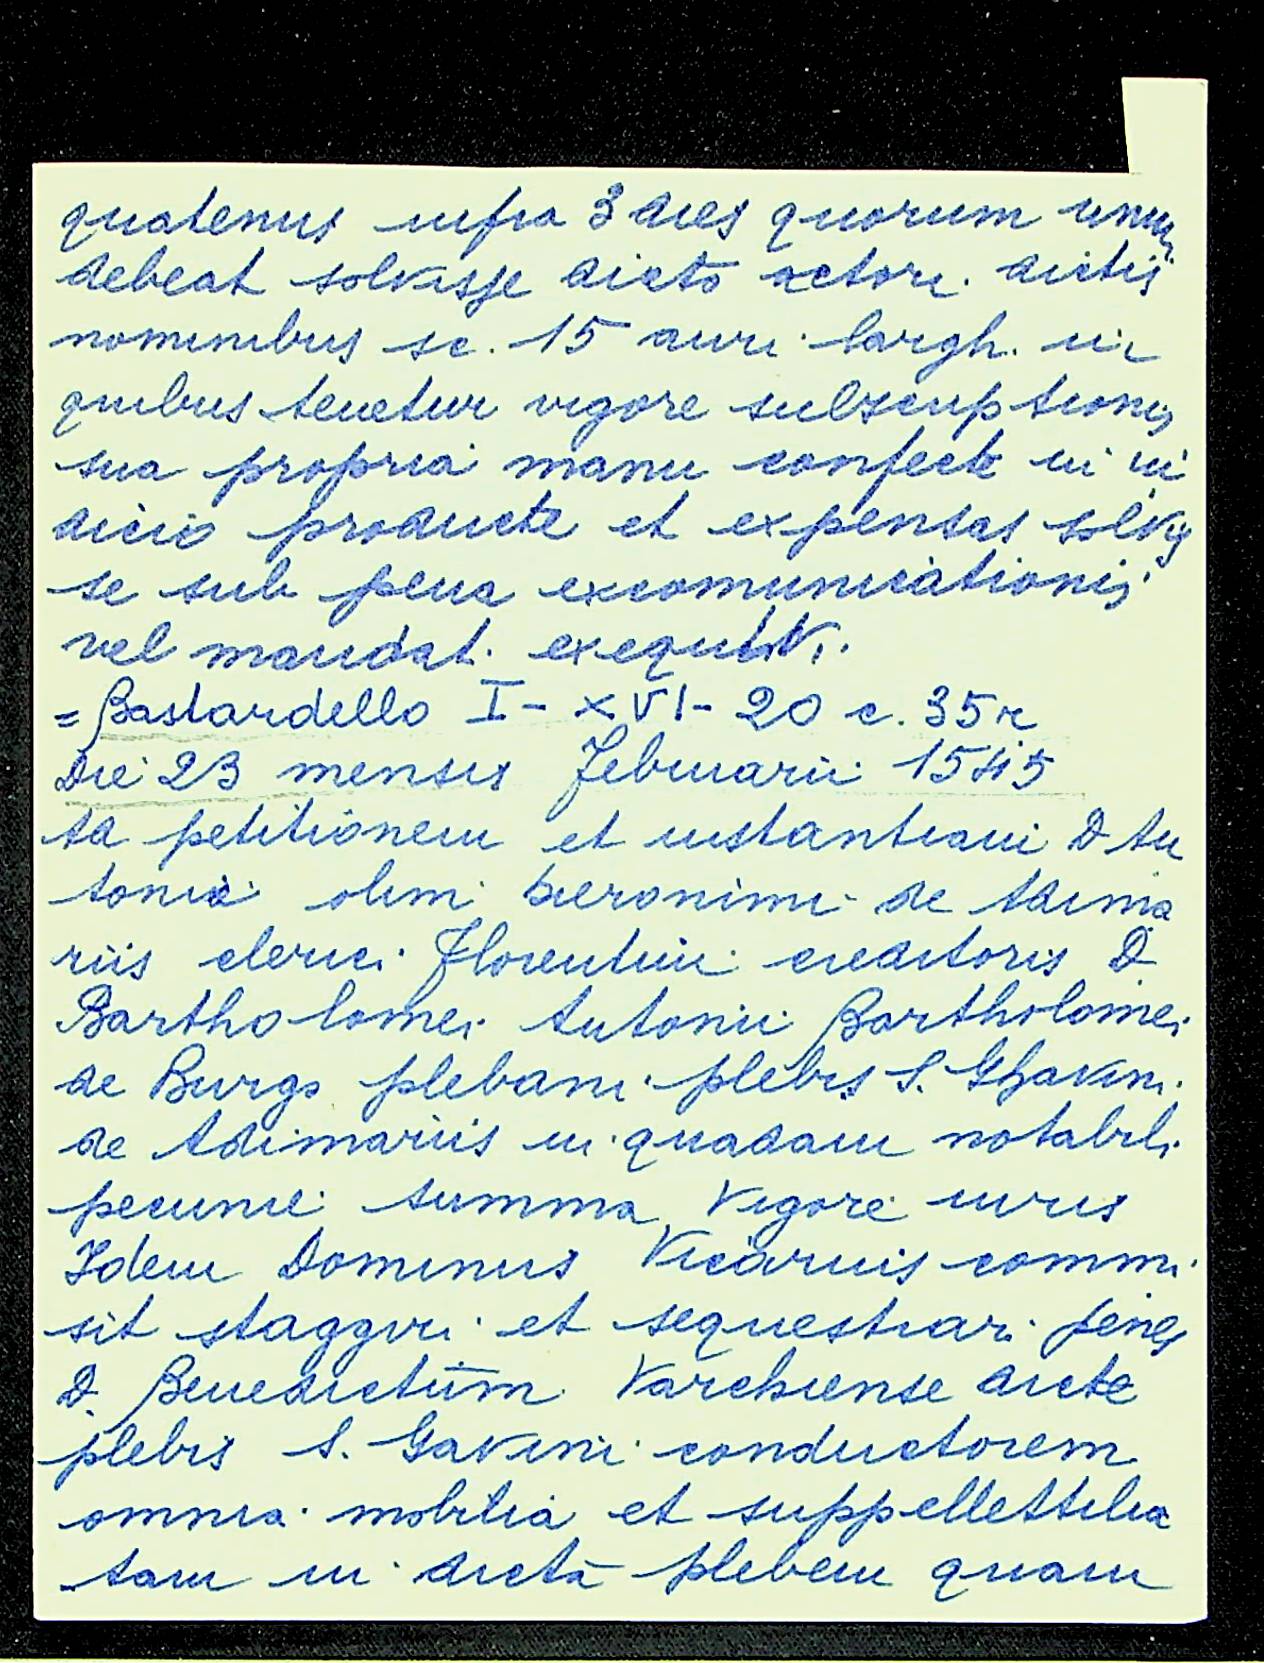 quatenus infra 3 dies quorum unum
debeat solvisse dicto actori dictis
nominibus sc. 15 auri largh. in
quibus tenetur vigore subscriptionis
sua propria manu confecte in iu
dicio producte et expensas solvis
se sub pena excomunicationis
vel mandat. executivi.
= Bastardello I - XVI - 20 c. 35r
Die 23 mensis Februarii 1545
Ad petitionem et instantiam D An
tonii olim Hieronimi de Adima
riis clerici Florentini creditoris D
Bartholomei Antonii Bartholomei
de Burgo plebani plebis S. Ghavini
de Adimariis in quadam notabili
pecunie summa, vigore iuris
Idem Dominus Vicarius commi
sit staggiri et sequestrari penes
D. Benedictum Varchiense dicte
plebis S. Gavini conductorem
omnia mobilia et suppellettilia
tam in dictā plebem quam